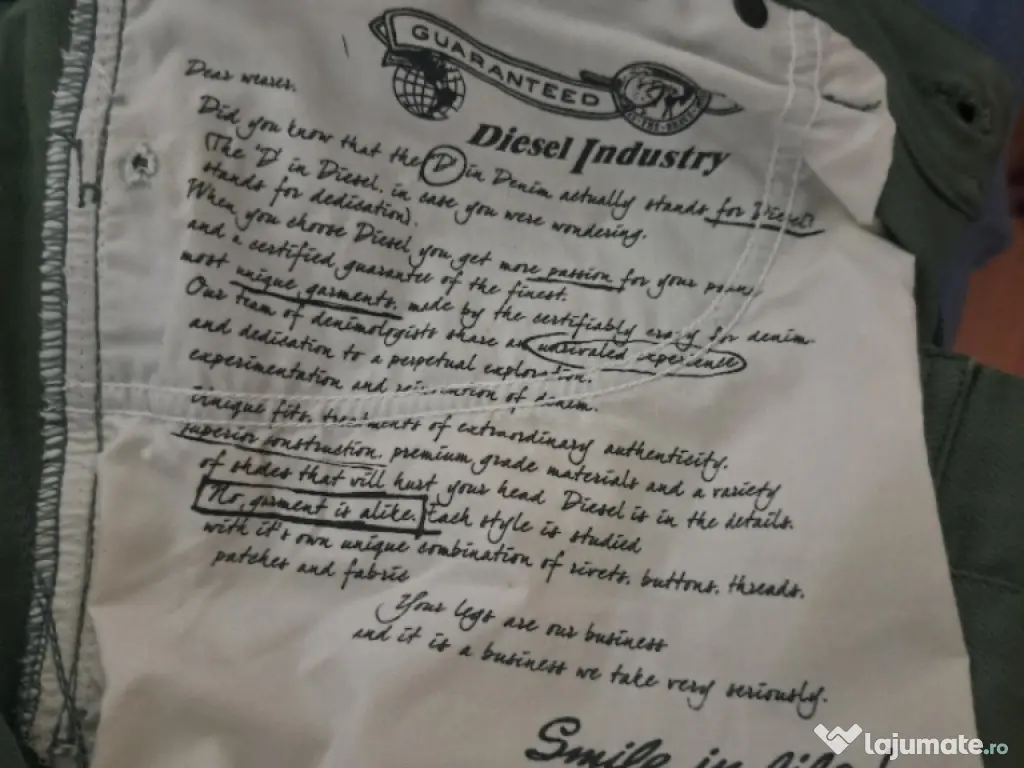 GUARANTEED
ONLY THE BRAVE
Diesel Industry
Dear wearer,
Did you know that the 'D' in Denim actually stands for Diesel?
(The 'D' in Diesel, in case you were wondering,
stands for dedication).
When you choose Diesel you get more passion for your
and a certified guarantee of the finest,
most unique garments, made by the certifiably crazy for denim.
Our team of denimologists share an unrivaled experience
and dedication to a perpetual exploration,
experimentation and of denim.
Unique fits, treatments of extraordinary authenticity,
superior construction, premium grade materials and a variety
of shdes that will hurt your head. Diesel is in the details.
No garment is alike. Each style is studied
with it's own unique combination of rivets, buttons, threads,
patches and fabric
Your legs are our business
and it is a business we take very seriously.
Smile in life!
lajumate.ro